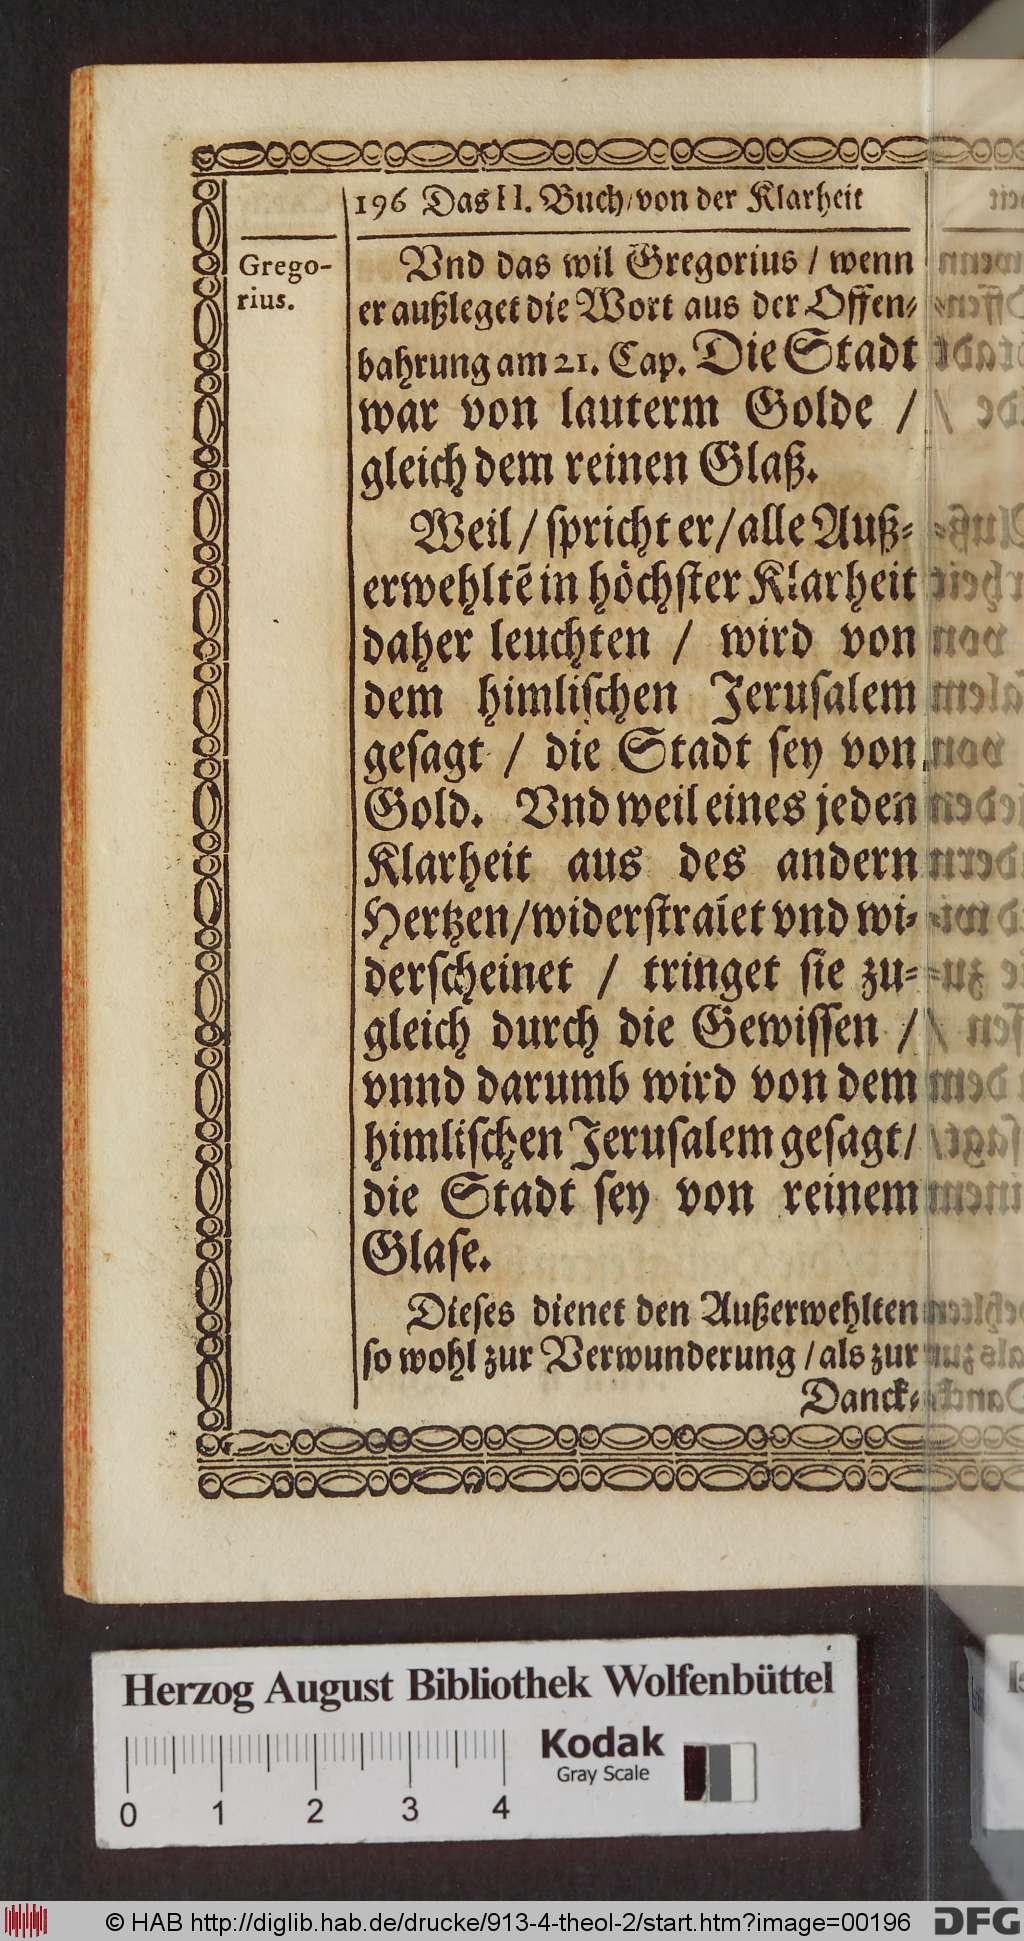 196 Das II. Buch/von der Klarheit
Grego-
rius.
Vnd das wil Gregorius / wenn
er außleget die Wort aus der Offen-
bahrung am 21. Cap. Die Stadt
war von lauterm Golde /
gleich dem reinen Glaß.
Weil / spricht er/alle Auß-
erwehltē in höchster Klarheit
daher leuchten / wird von
dem himlischen Jerusalem
gesagt / die Stadt sey von
Gold. Vnd weil eines jeden
Klarheit aus des andern
Hertzen/widerstralet vnd wi-
derscheinet / tringet sie zu-
gleich durch die Gewissen /
vnnd darumb wird von dem
himlischen Jerusalem gesagt/
die Stadt sey von reinem
Glase.
Dieses dienet den Außerwehlten
so wohl zur Verwunderung / als zur
Danck-
Herzog August Bibliothek Wolfenbüttel
Kodak
Gray Scale
0 1 2 3 4
© HAB http://diglib.hab.de/drucke/913-4-theol-2/start.htm?image=00196
DFG